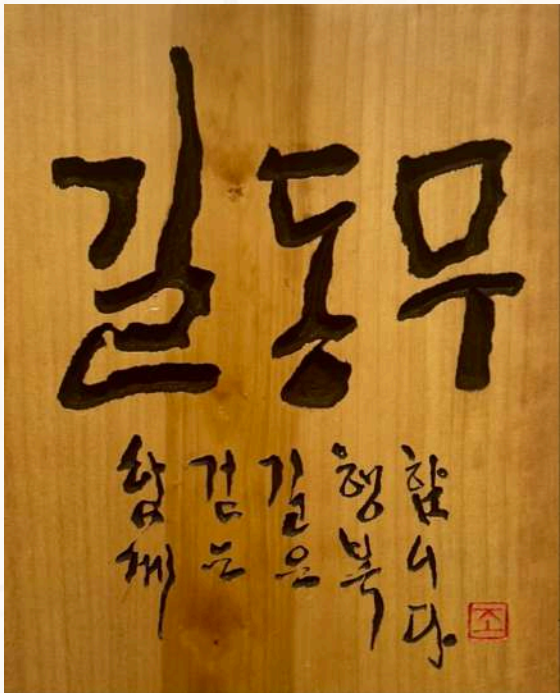 길동무
함께
걷는
길은
행복
합니다.
조